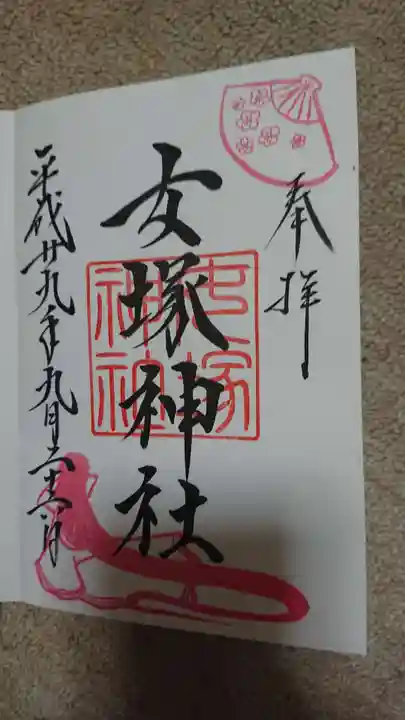 奉拝
女塚神社
女塚
神社
平成廿九年九月二十二日